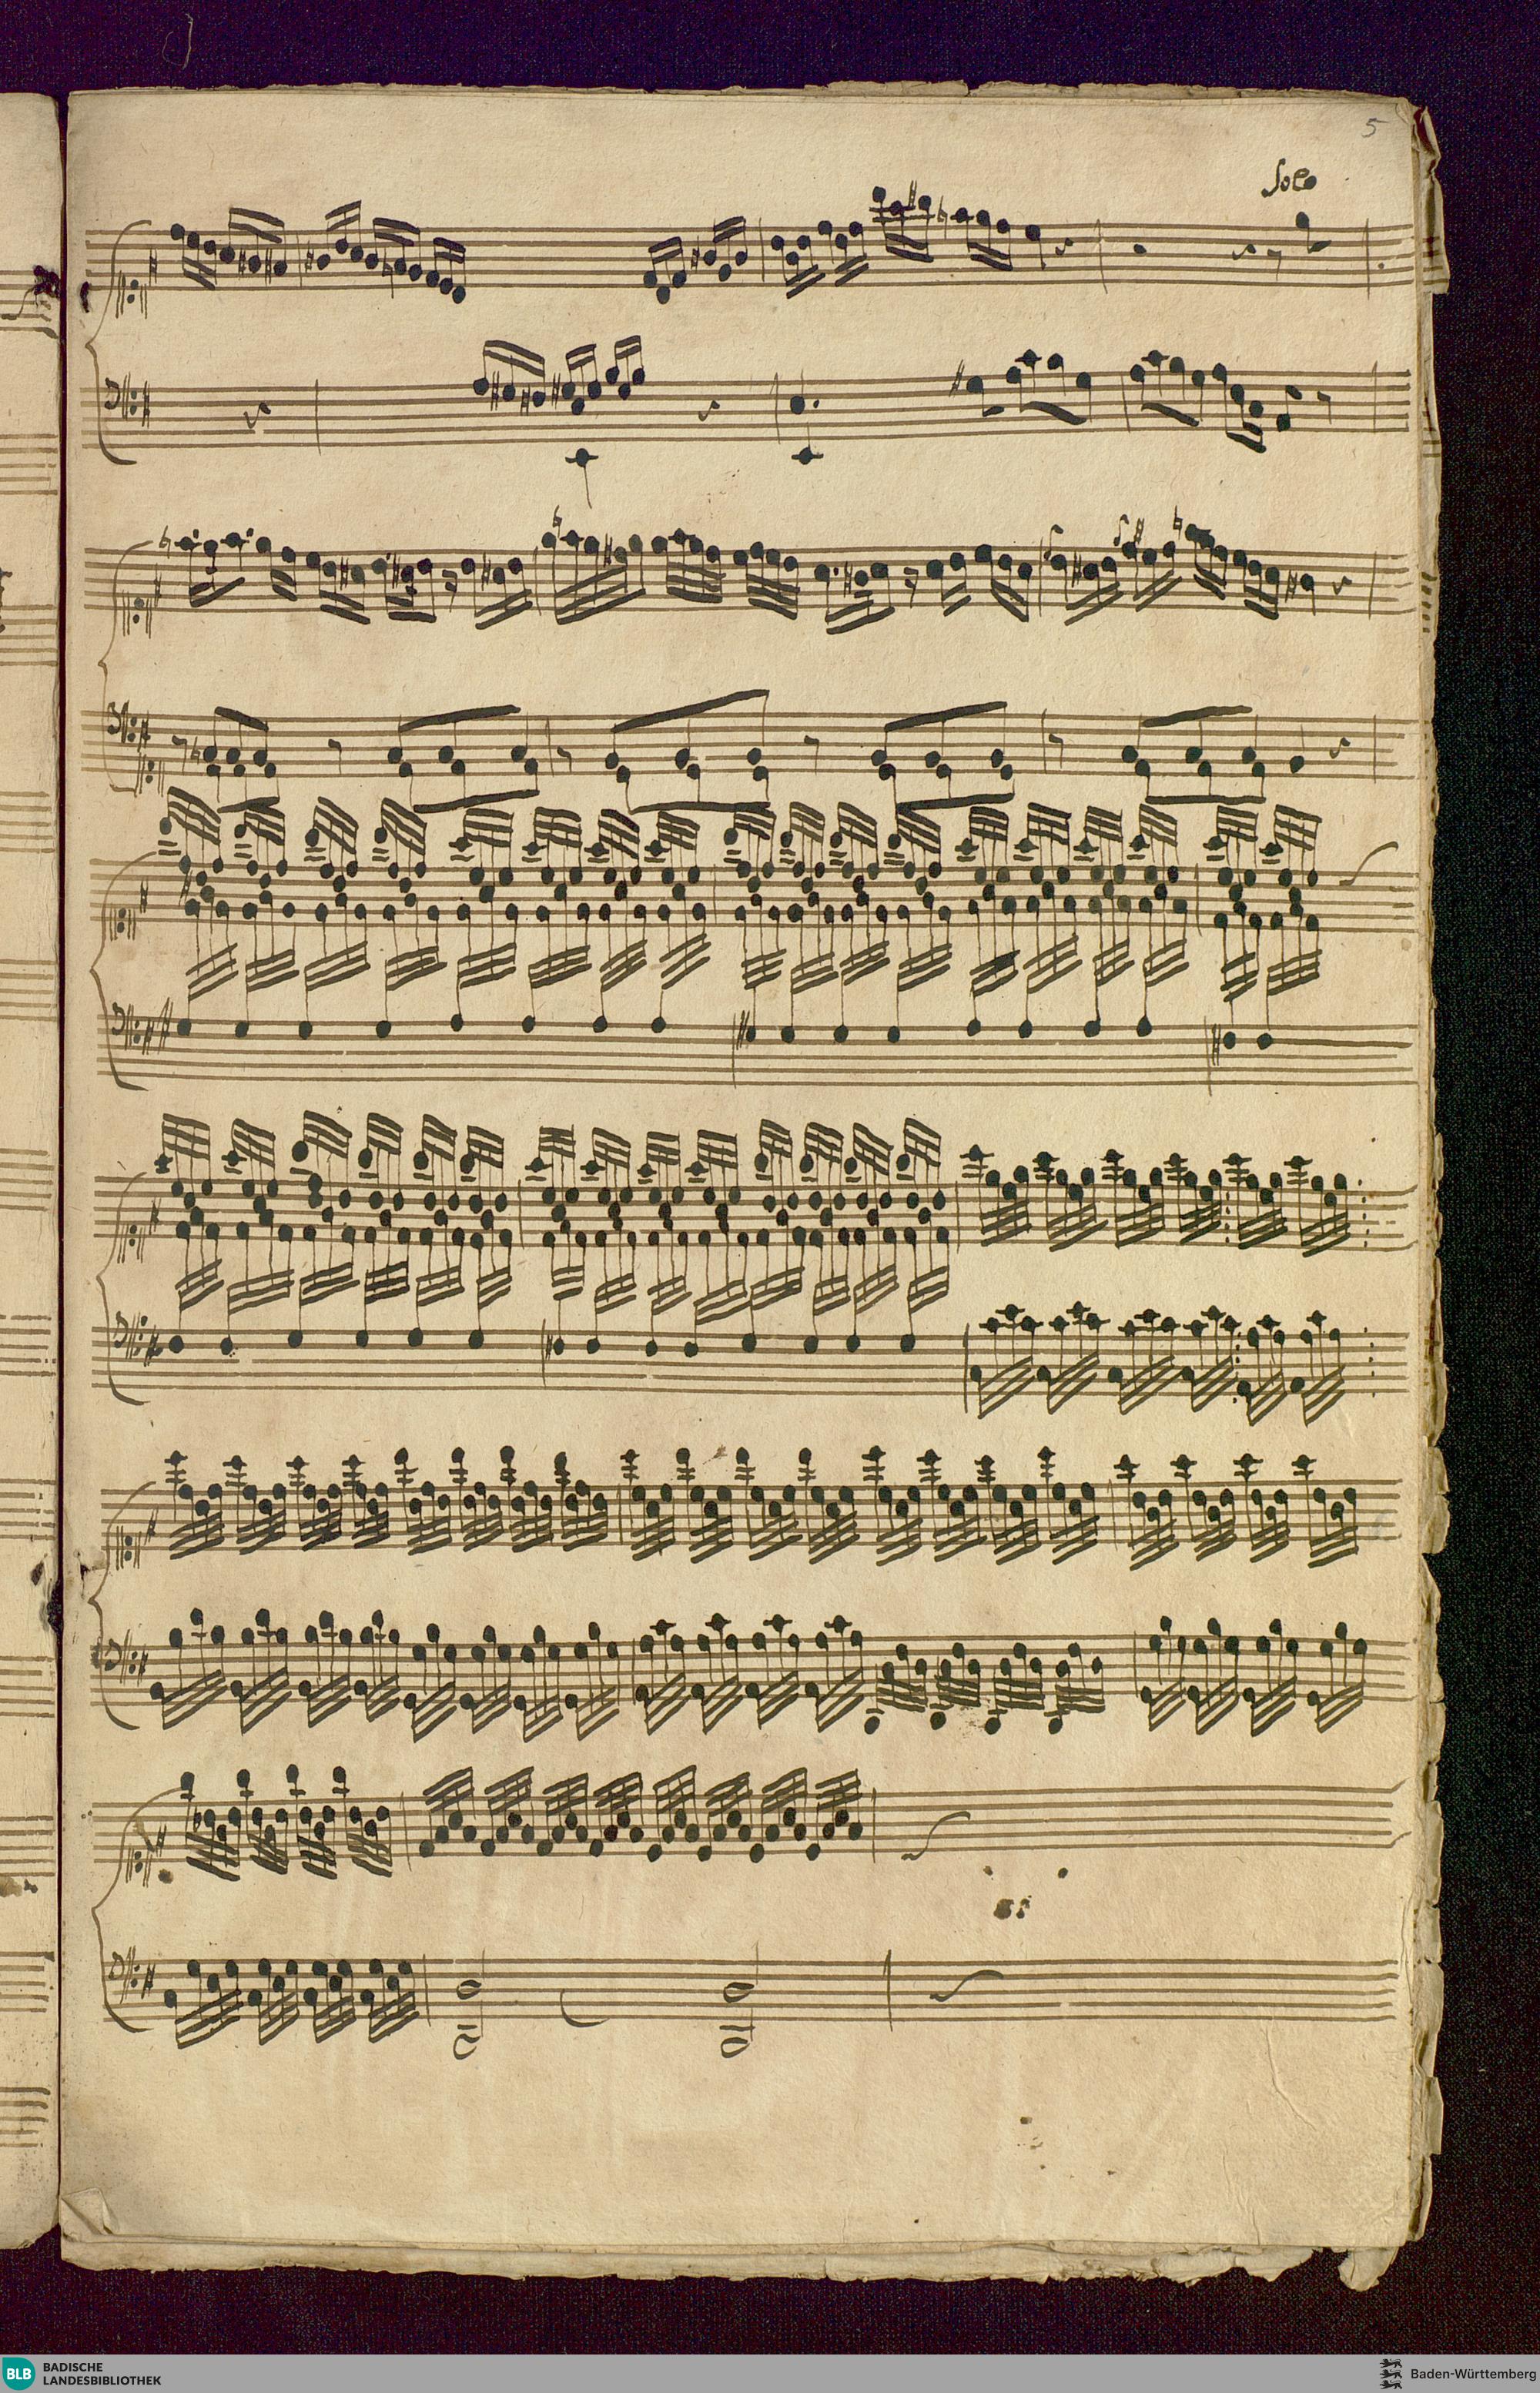 5
Solo
BLB BADISCHE
LANDESBIBLIOTHEK
Baden-Württemberg